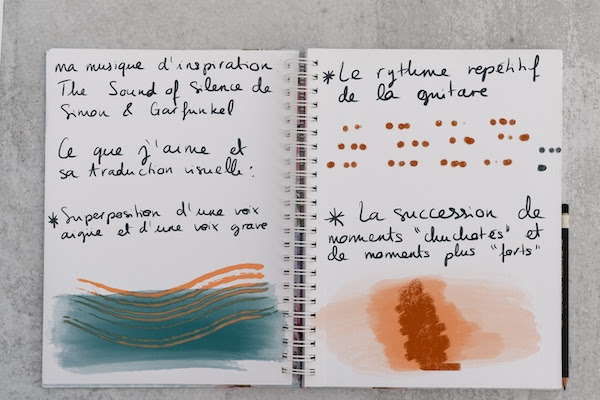 ma musique d'inspiration
The Sound of Silence de
Simon & Garfunkel
Ce que j'aime et
sa traduction visuelle :
* Superposition d'une voix
aigue et d'une voix grave
* Le rythme repétitif
de la guitare
* La succession de
moments "chuchotés" et
de moments plus "forts"